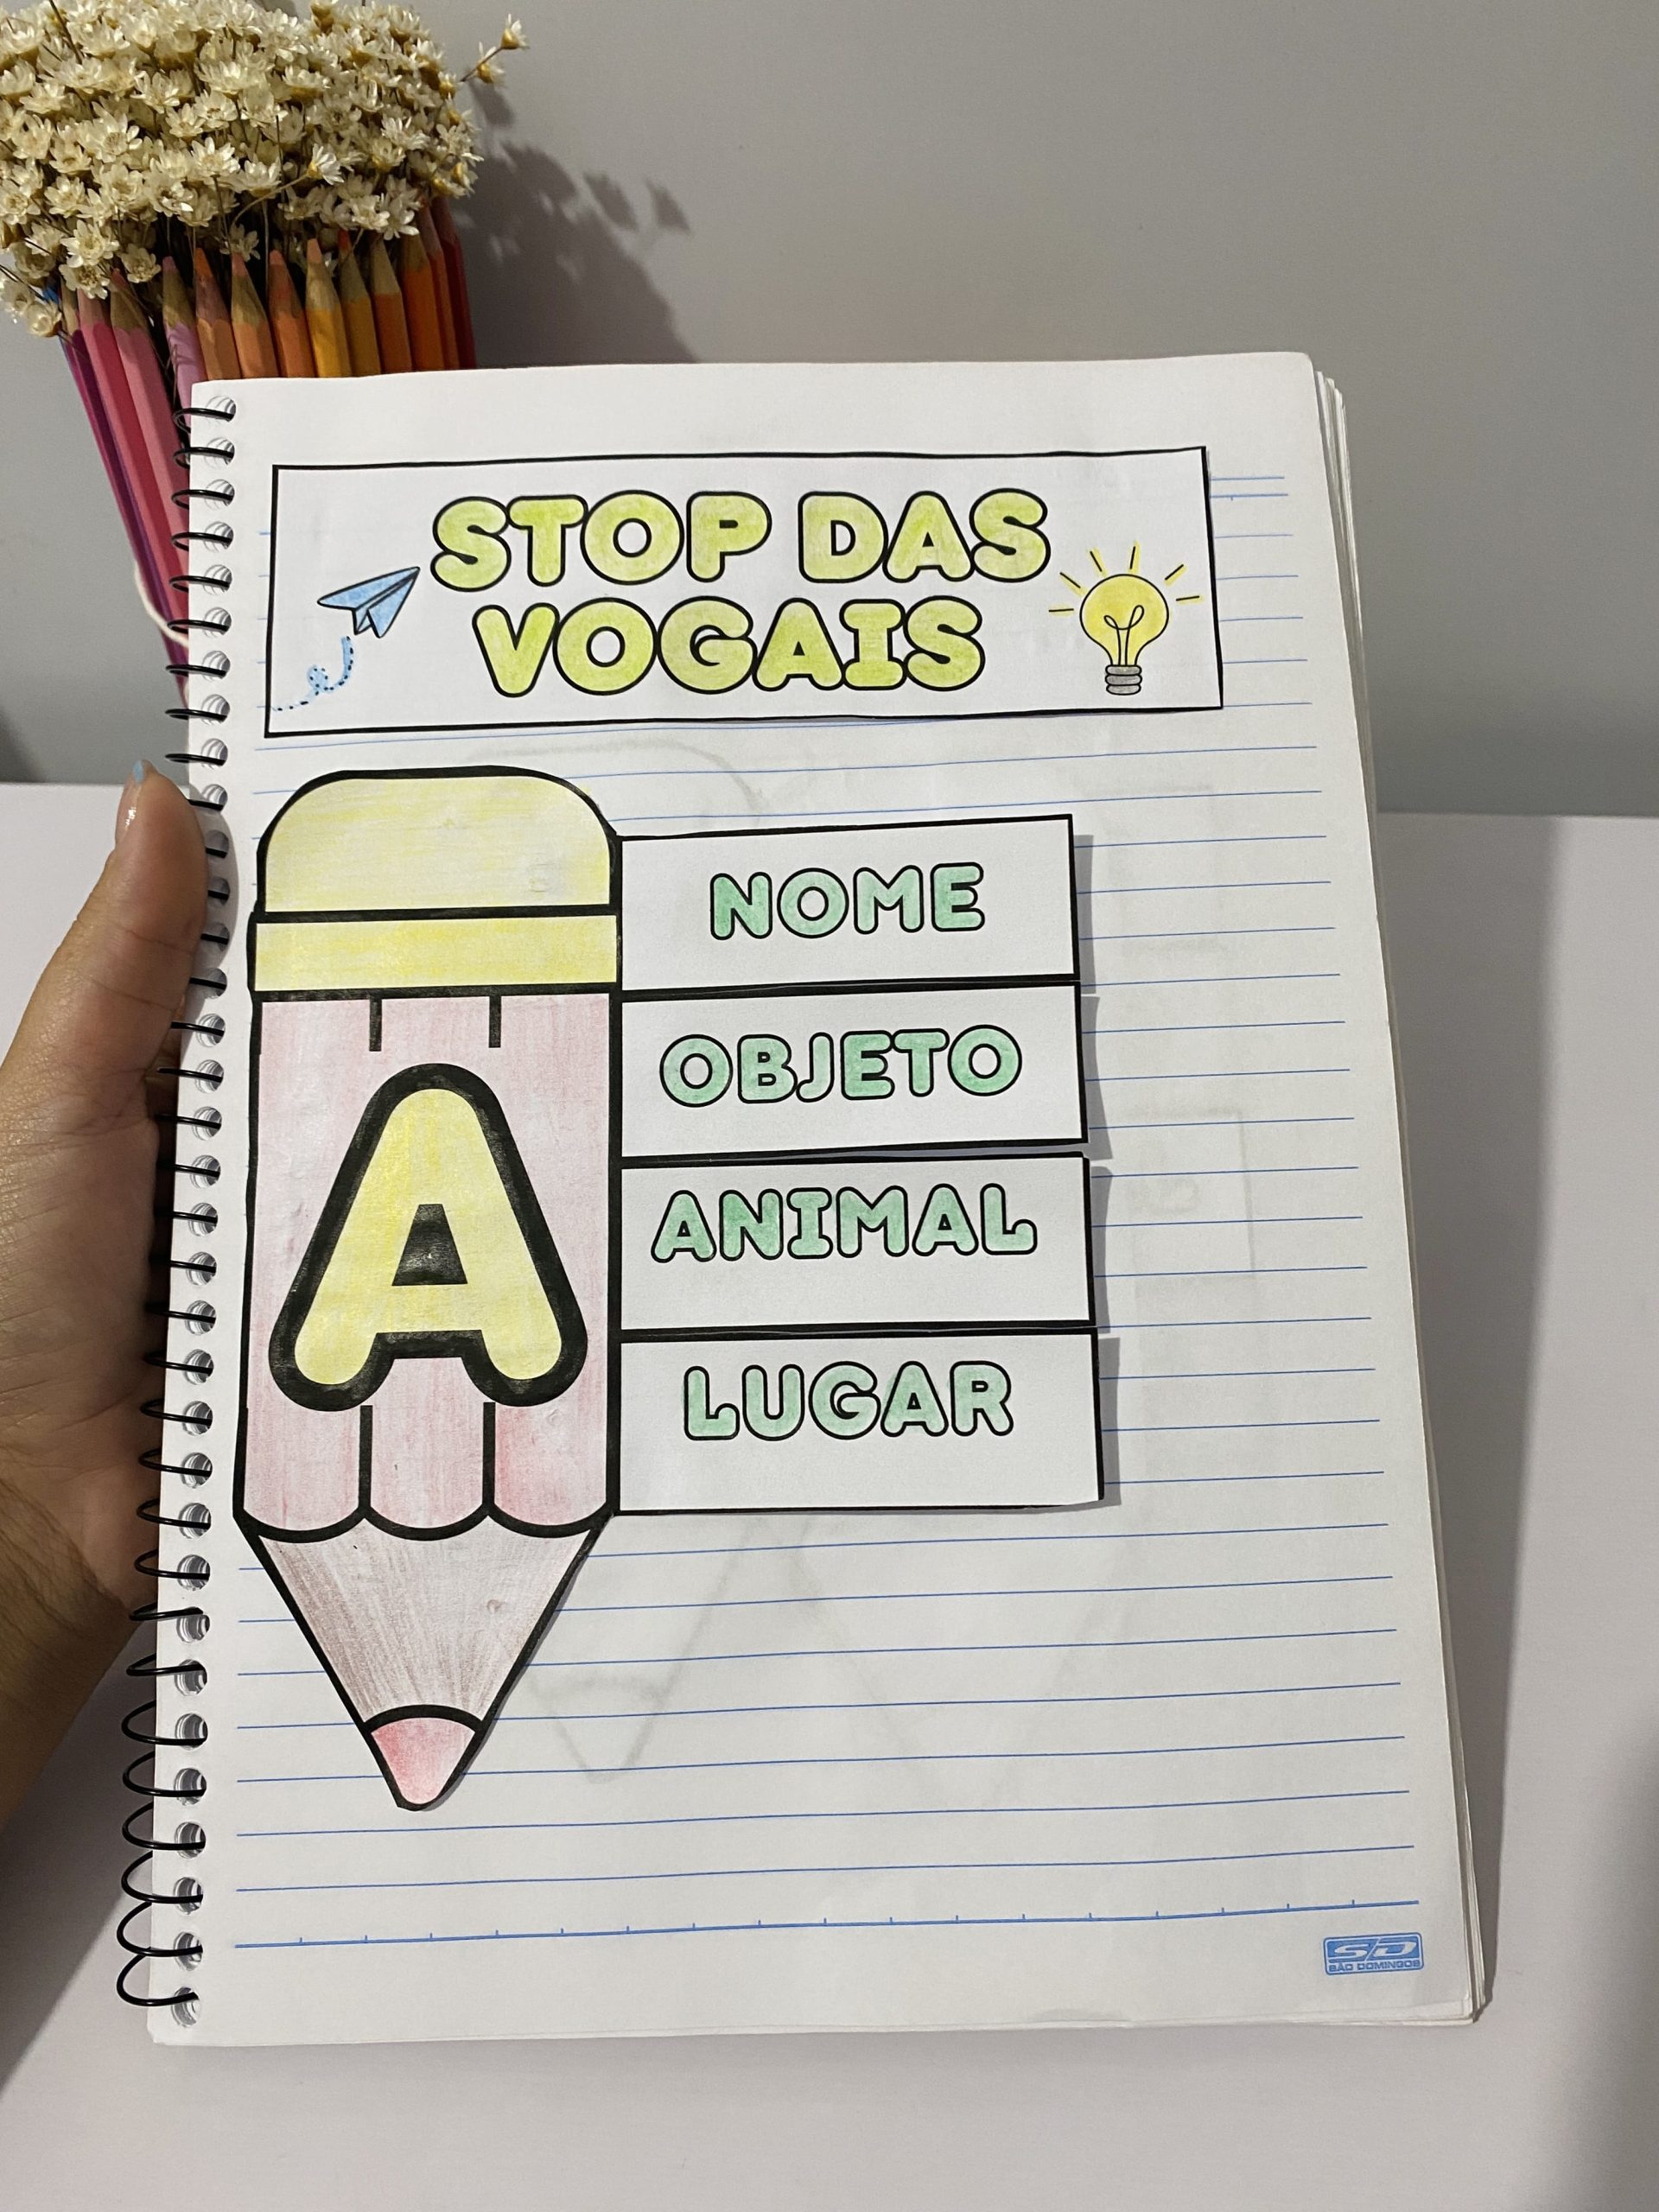 STOP DAS
VOGAIS
A
NOME
OBJETO
ANIMAL
LUGAR
SD
SÃO DOMINGOS